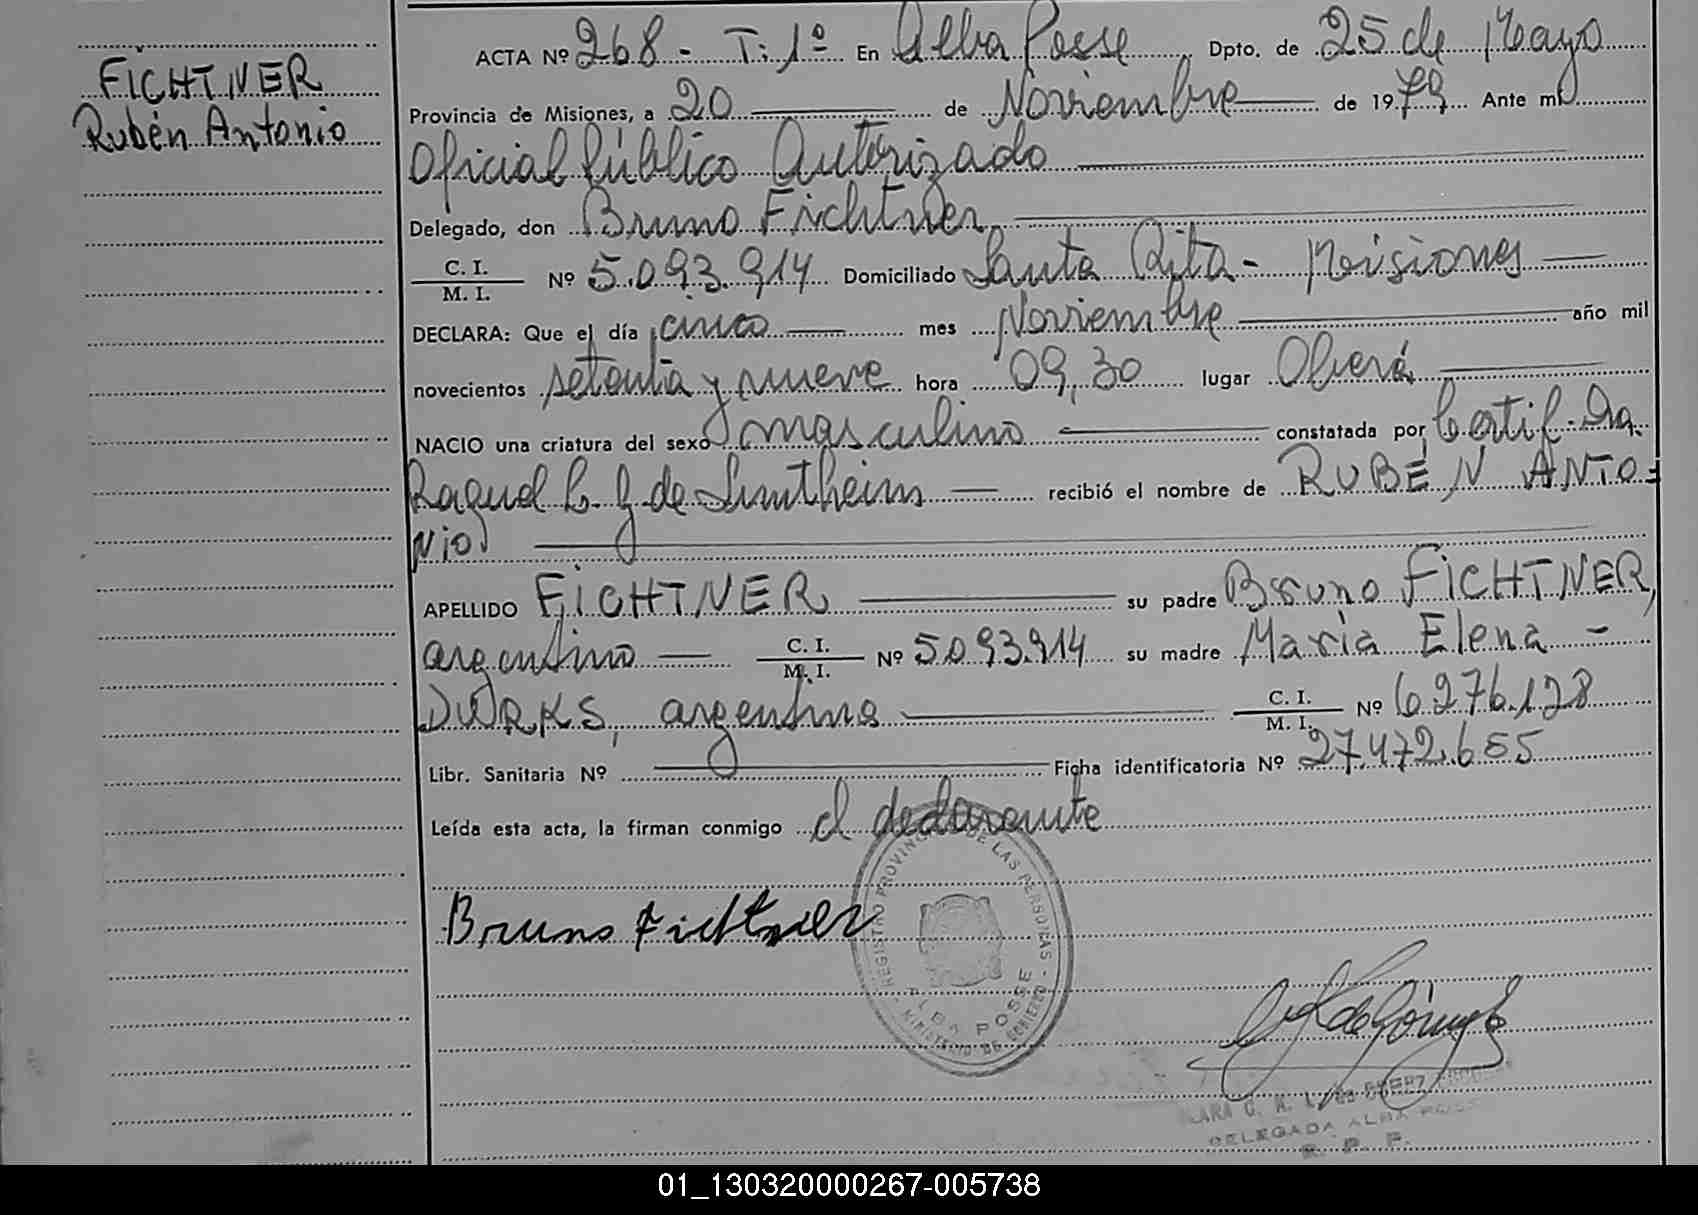 FICHTNER
Rubén Antonio
ACTA Nº 268 - T: 1º En Alba Posse Dpto. de 25 de Mayo
Provincia de Misiones, a 20 de Noviembre de 1979 Ante mí
Oficial Público Autorizado
Delegado, don Bruno Fichtner
C. I.
M. I. Nº 5.093.914 Domiciliado Santa Rita - Misiones
DECLARA: Que el día cinco mes Noviembre año mil
novecientos setenta y nueve hora 09,30 lugar Oberá
NACIO una criatura del sexo masculino constatada por Certif. Dra.
Raquel de recibió el nombre de RUBÉN ANTO=
NIO
APELLIDO FICHTNER su padre Bruno FICHTNER,
argentino C. I.
M. I. Nº 5.093.914 su madre María Elena -
DWRKS, argentina C. I.
M. I. Nº 6.276.128
Libr. Sanitaria Nº Ficha identificatoria Nº 27.472.655
Leída esta acta, la firman conmigo el declarante
Bruno Fichtner
REGISTRO PROVINCIAL DE LAS PERSONAS - MINISTERIO DE GOBIERNO -
ALBA POSSE
de Gómez
DELEGADA ALBA POSSE
R. P. P.
01_130320000267-005738